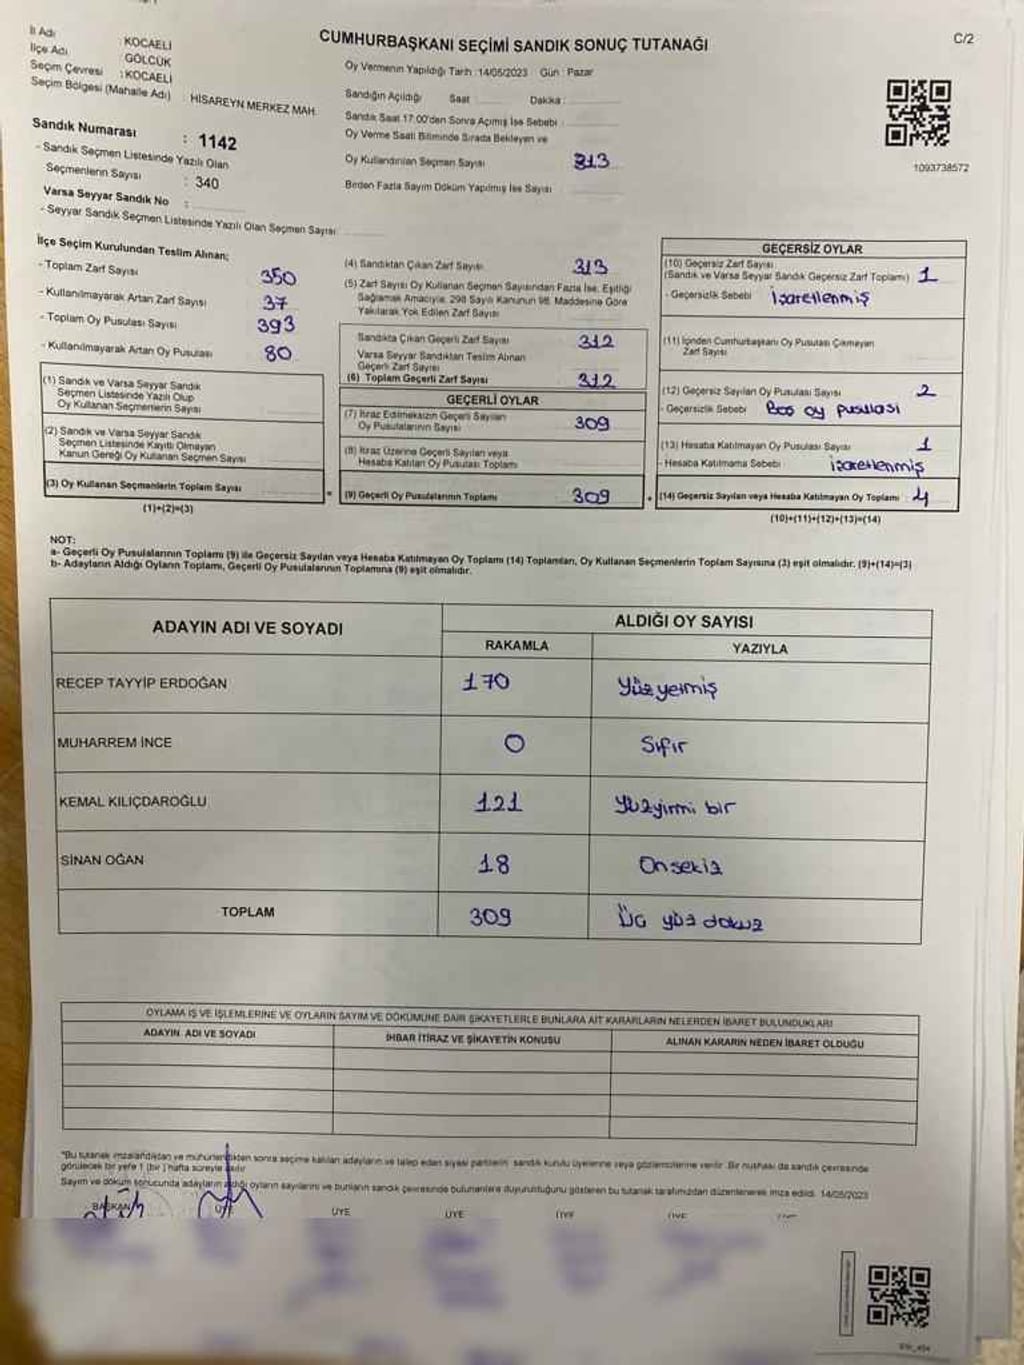 CUMHURBAŞKANI SEÇİMİ SANDIK SONUÇ TUTANAĞI
C/2
İl Adı : KOCAELİ
İlçe Adı : GÖLCÜK
Seçim Çevresi : KOCAELİ
Seçim Bölgesi (Mahalle Adı) : HİSAREYN MERKEZ MAH.
Sandık Numarası : 1142
- Sandık Seçmen Listesinde Yazılı Olan
Seçmenlerin Sayısı : 340
Varsa Seyyar Sandık No :
- Seyyar Sandık Seçmen Listesinde Yazılı Olan Seçmen Sayısı:
Oy Vermenin Yapıldığı Tarih :14/05/2023 Gün : Pazar
Sandığın Açıldığı Saat : Dakika :
Sandık Saat 17:00'den Sonra Açımış İse Sebebi :
Oy Verme Saati Bitiminde Sırada Bekleyen ve
Oy Kullandırılan Seçmen Sayısı 313
Birden Fazla Sayım Döküm Yapılmış İse Sayısı
1093738572
İlçe Seçim Kurulundan Teslim Alınan;
- Toplam Zarf Sayısı 350
- Kullanılmayarak Artan Zarf Sayısı 37
- Toplam Oy Pusulası Sayısı 393
- Kullanılmayarak Artan Oy Pusulası 80
(1) Sandık ve Varsa Seyyar Sandık
Seçmen Listesinde Yazılı Olup
Oy Kullanan Seçmenlerin Sayısı
(2) Sandık ve Varsa Seyyar Sandık
Seçmen Listesinde Kayıtlı Olmayan
Kanun Gereği Oy Kullanan Seçmen Sayısı
(3) Oy Kullanan Seçmenlerin Toplam Sayısı
(1)+(2)=(3)
=
(4) Sandıktan Çıkan Zarf Sayısı 313
(5) Zarf Sayısı Oy Kullanan Seçmen Sayısından Fazla İse, Eşitliği
Sağlamak Amacıyla, 298 Sayılı Kanunun 98. Maddesine Göre
Yakılarak Yok Edilen Zarf Sayısı
Sandıkta Çıkan Geçerli Zarf Sayısı 312
Varsa Seyyar Sandıktan Teslim Alınan
Geçerli Zarf Sayısı
(6) Toplam Geçerli Zarf Sayısı 312
GEÇERLİ OYLAR
(7) İtiraz Edilmeksizin Geçerli Sayılan
Oy Pusulalarının Sayısı 309
(8) İtiraz Üzerine Geçerli Sayılan veya
Hesaba Katılan Oy Pusulası Toplamı
(9) Geçerli Oy Pusulalarının Toplamı 309
+
GEÇERSİZ OYLAR
(10) Geçersiz Zarf Sayısı
(Sandık ve Varsa Seyyar Sandık Geçersiz Zarf Toplamı) 1
- Geçersizlik Sebebi işaretlenmiş
(11) İçinden Cumhurbaşkanı Oy Pusulası Çıkmayan
Zarf Sayısı
(12) Geçersiz Sayılan Oy Pusulası Sayısı 2
- Geçersizlik Sebebi Boş oy pusulası
(13) Hesaba Katılmayan Oy Pusulası Sayısı 1
- Hesaba Katılmama Sebebi işaretlenmiş
(14) Geçersiz Sayılan veya Hesaba Katılmayan Oy Toplamı : 4
(10)+(11)+(12)+(13)=(14)
NOT:
a- Geçerli Oy Pusulalarının Toplamı (9) ile Geçersiz Sayılan veya Hesaba Katılmayan Oy Toplamı (14) Toplamları, Oy Kullanan Seçmenlerin Toplam Sayısına (3) eşit olmalıdır. (9)+(14)=(3)
b- Adayların Aldığı Oyların Toplamı, Geçerli Oy Pusulalarının Toplamına (9) eşit olmalıdır.
ADAYIN ADI VE SOYADI
ALDIĞI OY SAYISI
RAKAMLA YAZIYLA
RECEP TAYYİP ERDOĞAN 170 Yüzyetmiş
MUHARREM İNCE 0 Sıfır
KEMAL KILIÇDAROĞLU 121 Yüzyirmi bir
SİNAN OĞAN 18 Onsekiz
TOPLAM 309 Üç yüz dokuz
OYLAMA İŞ VE İŞLEMLERİNE VE OYLARIN SAYIM VE DÖKÜMÜNE DAİR ŞİKAYETLERLE BUNLARA AİT KARARLARIN NELERDEN İBARET BULUNDUKLARI
ADAYIN ADI VE SOYADI İHBAR İTİRAZ VE ŞİKAYETİN KONUSU ALINAN KARARIN NEDEN İBARET OLDUĞU
"Bu tutanak imzalandıktan ve mühürlendikten sonra seçime katılan adayların ve talep eden siyasi partilerin sandık kurulu üyelerine veya gözlemcilerine verilir. Bir nüshası da sandık çevresinde
görülecek bir yere 1 (bir) hafta süreyle asılır
Sayım ve döküm sonucunda adayların aldığı oyların sayılarını ve bunların sandık çevresinde bulunanlara duyurulduğunu gösteren bu tutanak tarafımızdan düzenlenerek imza edildi. 14/05/2023
BAŞKAN ÜYE ÜYE ÜYE ÜYE ÜYE